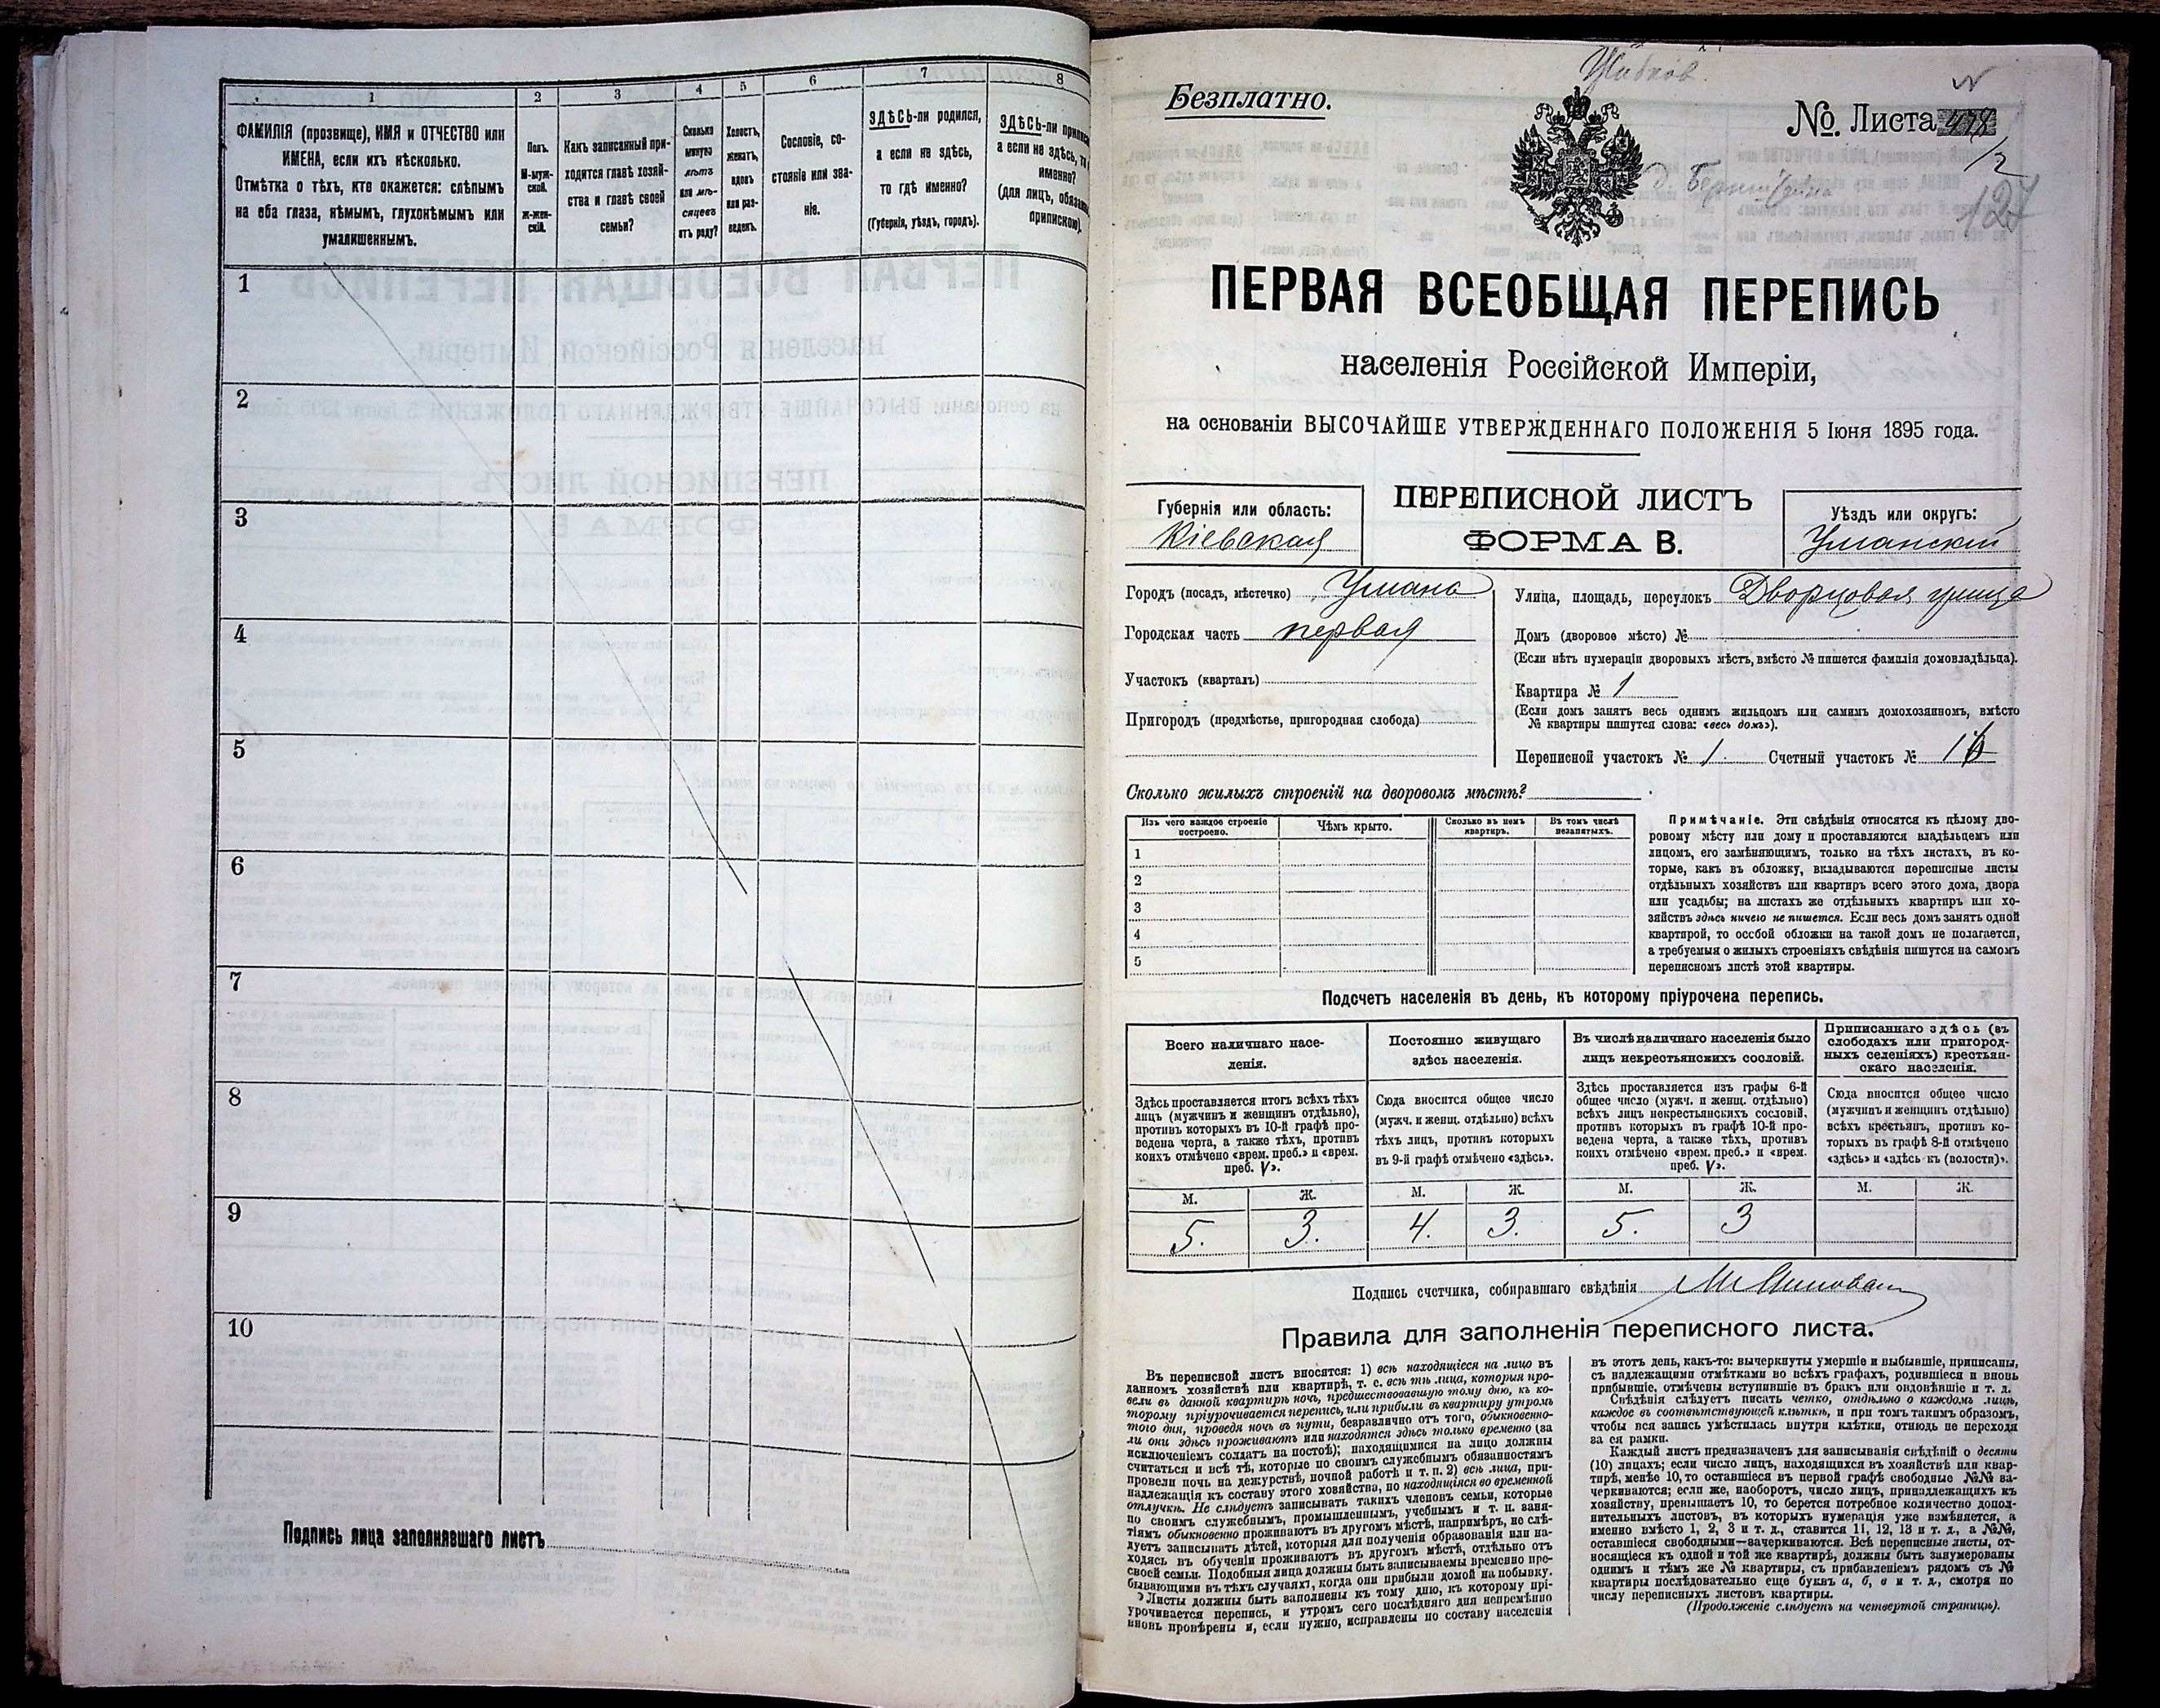 1
2
3
4
5
6
7
8
ФАМИЛІЯ (прозвище), ИМЯ и ОТЧЕСТВО или
ИМЕНА, если ихъ нѣсколько.
Отмѣтка о тѣхъ, кто окажется: слѣпымъ
на оба глаза, нѣмымъ, глухонѣмымъ или
умалишеннымъ.
Полъ.
М-муж-
ской.
ж-жен-
скій.
Какъ записанный при-
ходится главѣ хозяй-
ства и главѣ своей
семьи?
Сколько
минуло
лѣтъ
или мѣ-
сяцевъ
отъ роду?
Холостъ,
женатъ,
вдовъ
или раз-
веденъ.
Сословіе, со-
стояніе или зва-
ніе.
ЗДѢСЬ-ли родился,
а если не здѣсь,
то гдѣ именно?
(Губернія, уѣздъ, городъ).
ЗДѢСЬ-ли
а если не здѣсь,
именно?
(для лицъ,
припискою).
1
2
3
4
5
6
7
8
9
10
Подпись лица заполнявшаго листъ
Безплатно.
№. Листа
127
ПЕРВАЯ ВСЕОБЩАЯ ПЕРЕПИСЬ
населенія Россійской Имперіи,
на основаніи ВЫСОЧАЙШЕ УТВЕРЖДЕННАГО ПОЛОЖЕНІЯ 5 Іюня 1895 года.
Губернія или область:
Кіевская
ПЕРЕПИСНОЙ ЛИСТЪ
ФОРМА В.
Уѣздъ или округъ:
Уманскій
Городъ (посадъ, мѣстечко) Умань
Городская часть первая
Участокъ (кварталъ)
Пригородъ (предмѣстье, пригородная слобода)
Улица, площадь, переулокъ Дворцовая улица
Домъ (дворовое мѣсто) №
(Если нѣтъ нумераціи дворовыхъ мѣстъ, вмѣсто № пишется фамилія домовладѣльца).
Квартира № 1
(Если домъ занятъ весь однимъ жильцомъ или самимъ домохозяиномъ, вмѣсто
№ квартиры пишутся слова: «весь домъ»).
Переписной участокъ № 1. Счетный участокъ №
Сколько жилыхъ строеній на дворовомъ мѣстѣ?
Изъ чего каждое строеніе
построено.
Чѣмъ крыто.
Сколько въ немъ
квартиръ.
Въ томъ числѣ
незанятыхъ.
1
2
3
4
5
Примѣчаніе. Эти свѣдѣнія относятся къ цѣлому дво-
ровому мѣсту или дому и проставляются владѣльцемъ или
лицомъ, его замѣняющимъ, только на тѣхъ листахъ, въ ко-
торые, какъ въ обложку, вкладываются переписные листы
отдѣльныхъ хозяйствъ или квартиръ всего этого дома, двора
или усадьбы; на листахъ же отдѣльныхъ квартиръ или хо-
зяйствъ здѣсь ничего не пишется. Если весь домъ занятъ одной
квартирой, то особой обложки на такой домъ не полагается,
а требуемыя о жилыхъ строеніяхъ свѣдѣнія пишутся на самомъ
переписномъ листѣ этой квартиры.
Подсчетъ населенія въ день, къ которому пріурочена перепись.
Всего наличнаго насе-
ленія.
Постоянно живущаго
здѣсь населенія.
Въ числѣ наличнаго населенія было
лицъ некрестьянскихъ сословій.
Приписаннаго здѣсь (въ
слободахъ или пригород-
ныхъ селеніяхъ) крестьян-
скаго населенія.
Здѣсь проставляется итогъ всѣхъ тѣхъ
лицъ (мужчинъ и женщинъ отдѣльно),
противъ которыхъ въ 10-й графѣ про-
ведена черта, а также тѣхъ, противъ
коихъ отмѣчено «врем. преб.» и «врем.
преб. V».
Сюда вносится общее число
(мужч. и женщ. отдѣльно) всѣхъ
тѣхъ лицъ, противъ которыхъ
въ 9-й графѣ отмѣчено «здѣсь».
Здѣсь проставляется изъ графы 6-й
общее число (мужч. и женщ. отдѣльно)
всѣхъ лицъ некрестьянскихъ сословій,
противъ которыхъ въ графѣ 10-й про-
ведена черта, а также тѣхъ, противъ
коихъ отмѣчено «врем. преб.» и «врем.
преб. V».
Сюда вносится общее число
(мужчинъ и женщинъ отдѣльно)
всѣхъ крестьянъ, противъ ко-
торыхъ въ графѣ 8-й отмѣчено
«здѣсь» и «здѣсь къ (волости)».
М. Ж. М. Ж. М. Ж. М. Ж.
5. 3. 4. 3. 5. 3
Подпись счетчика, собиравшаго свѣдѣнія
Правила для заполненія переписного листа.
Въ переписной листъ вносятся: 1) всѣ находящіеся на лицо въ
данномъ хозяйствѣ или квартирѣ, т. е. всѣ тѣ лица, которыя про-
вели въ данной квартирѣ ночь, предшествовавшую тому дню, къ ко-
торому пріурочивается перепись, или прибыли въ квартиру утромъ
того дня, проведя ночь въ пути, безразлично отъ того, обыкновенно-
ли они здѣсь проживаютъ или находятся здѣсь только временно (за
исключеніемъ солдатъ на постоѣ); находящимися на лицо должны
считаться и всѣ тѣ, которые по своимъ служебнымъ обязанностямъ
провели ночь на дежурствѣ, ночной работѣ и т. п. 2) всѣ лица, при-
надлежащія къ составу этого хозяйства, но находящіяся во временной
отлучкѣ. Не слѣдуетъ записывать такихъ членовъ семьи, которые
по своимъ служебнымъ, промышленнымъ, учебнымъ и т. п. заня-
тіямъ обыкновенно проживаютъ въ другомъ мѣстѣ, напримѣръ, не слѣ-
дуетъ записывать дѣтей, которыя для полученія образованія или на-
ходясь въ обученіи проживаютъ въ другомъ мѣстѣ, отдѣльно отъ
своей семьи. Подобныя лица должны быть записываемы временно пре-
бывающими въ тѣхъ случаяхъ, когда они прибыли домой на побывку.
Листы должны быть заполнены къ тому дню, къ которому прі-
урочивается перепись, и утромъ сего послѣдняго дня непремѣнно
вновь провѣрены и, если нужно, исправлены по составу населенія
въ этотъ день, какъ-то: вычеркнуты умершіе и выбывшіе, приписаны,
съ надлежащими отмѣтками во всѣхъ графахъ, родившіеся и вновь
прибывшіе, отмѣчены вступившіе въ бракъ или овдовѣвшіе и т. д.
Свѣдѣнія слѣдуетъ писать четко, отдѣльно о каждомъ лицѣ,
каждое въ соотвѣтствующей клѣткѣ, и при томъ такимъ образомъ,
чтобы вся запись умѣстилась внутри клѣтки, отнюдь не переходя
за ея рамки.
Каждый листъ предназначенъ для записыванія свѣдѣній о десяти
(10) лицахъ; если число лицъ, находящихся въ хозяйствѣ или квар-
тирѣ, менѣе 10, то оставшіеся въ первой графѣ свободные №№ за-
черкиваются; если же, наоборотъ, число лицъ, принадлежащихъ къ
хозяйству, превышаетъ 10, то берется потребное количество допол-
нительныхъ листовъ, въ которыхъ нумерація уже измѣняется, а
именно вмѣсто 1, 2, 3 и т. д., ставится 11, 12, 13 и т. д., а №№,
оставшіеся свободными—зачеркиваются. Всѣ переписные листы, от-
носящіеся къ одной и той же квартирѣ, должны быть занумерованы
однимъ и тѣмъ же № квартиры, съ прибавленіемъ рядомъ съ №
квартиры послѣдовательно еще буквъ а, б, в и т. д., смотря по
числу переписныхъ листовъ квартиры.
(Продолженіе слѣдуетъ на четвертой страницѣ).